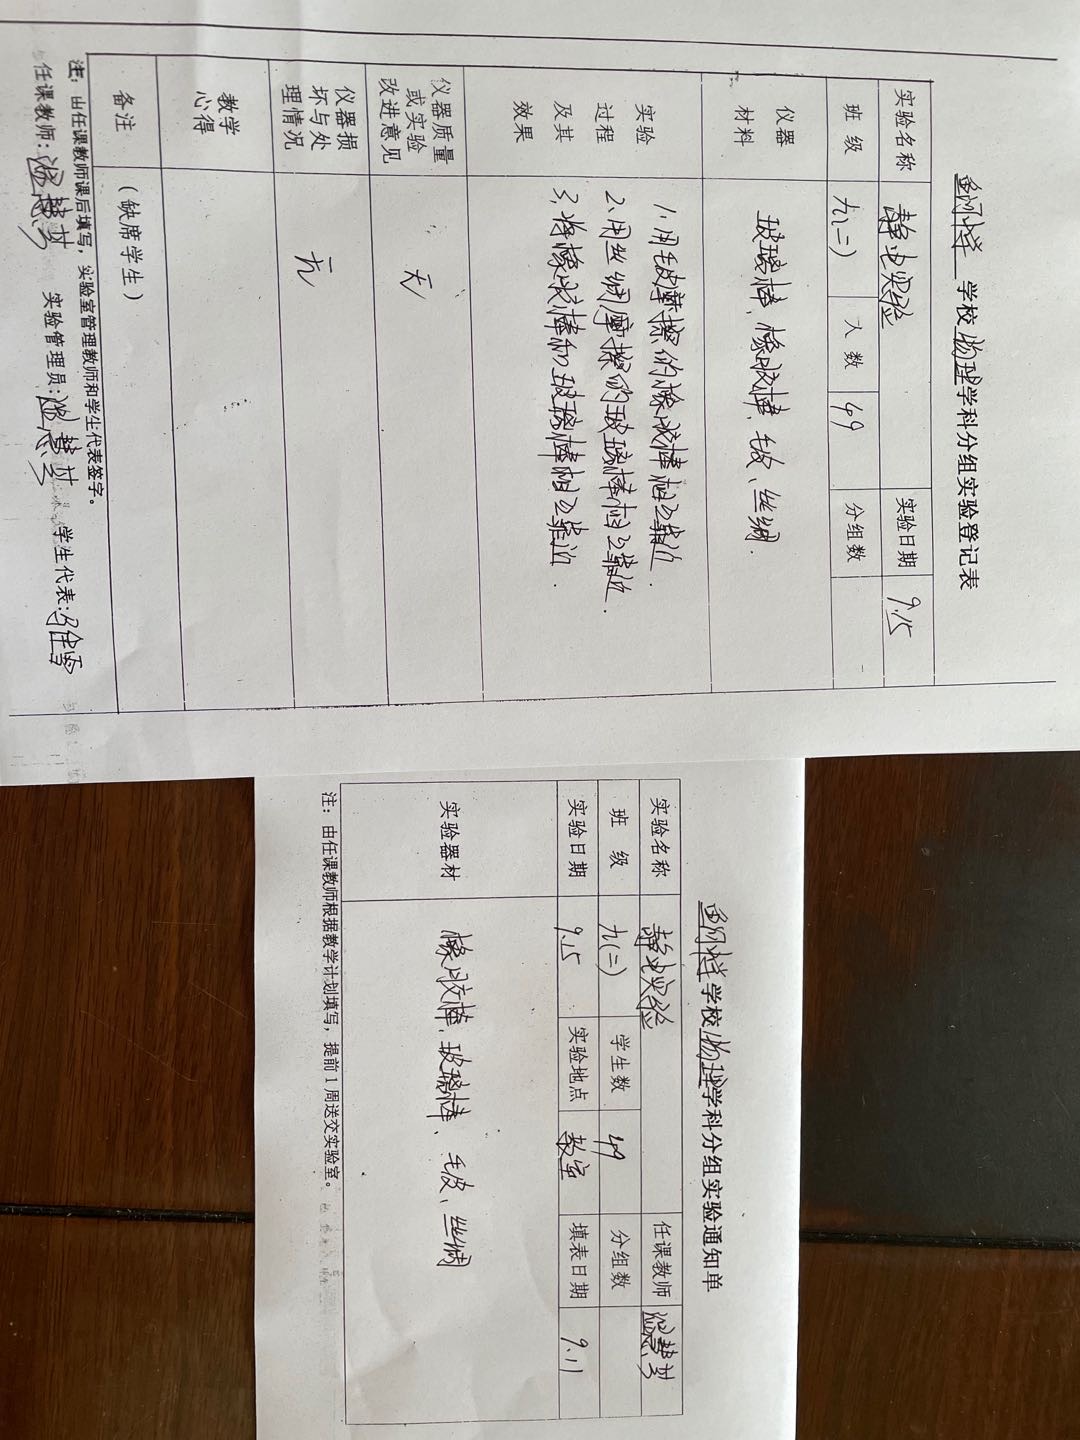 学校物理学科分组实验登记表
实验名称 静电实验 实验日期 9.15
班 级 九(二) 人 数 49 分组数
仪器材料 玻璃棒、橡胶棒、毛皮、丝绸.
实验过程及其效果
1.用毛皮摩擦的橡胶棒相互靠近.
2、用丝绸摩擦的玻璃棒相互靠近.
3、将橡胶棒和玻璃棒相互靠近.
仪器质量或实验改进意见 无
仪器损坏与处理情况 无
教学心得
备注 (缺席学生)
注:由任课教师课后填写,实验室管理教师和学生代表签字。
任课教师: 实验管理员: 学生代表:
学校物理学科分组实验通知单
实验名称 静电实验 任课教师
班 级 九(二) 学生数 49 分组数
实验日期 9.15 实验地点 教室 填表日期 9.11
实验器材 橡胶棒、玻璃棒、毛皮、丝绸
注:由任课教师根据教学计划填写,提前1周送交实验室。